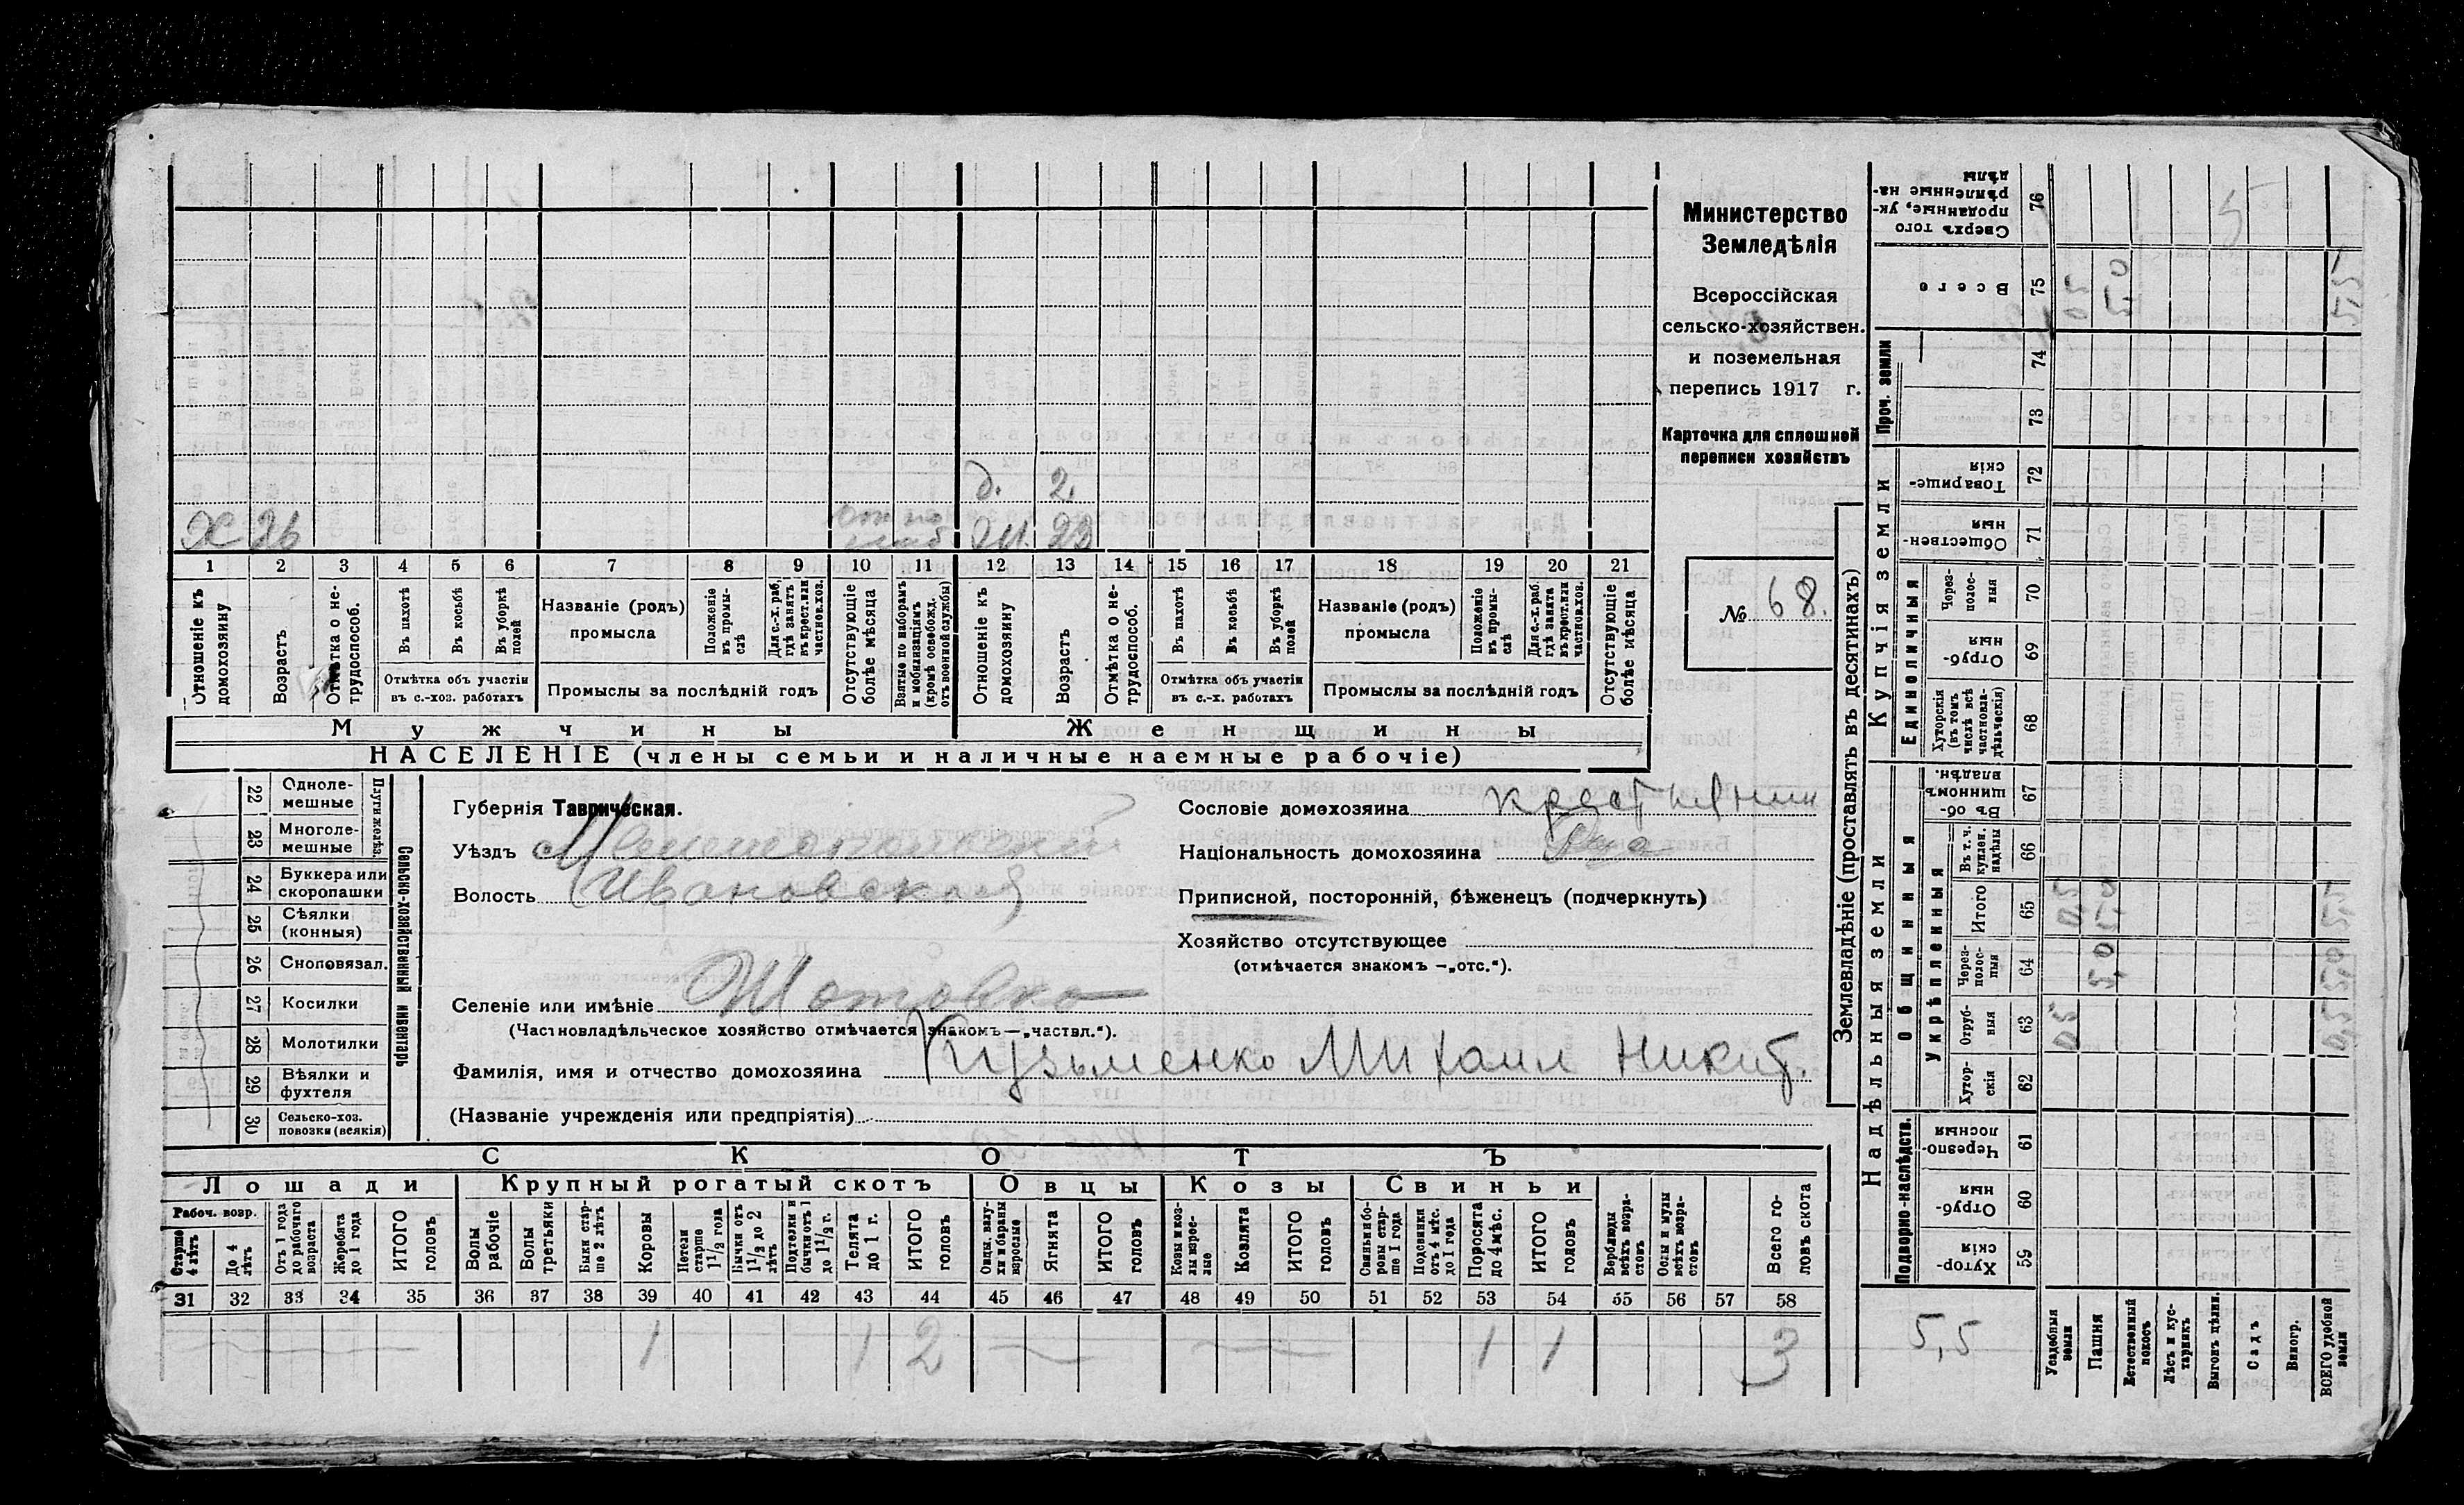 Х 26 Ж. 22
д. 2.
1 2 3 4 5 6 7 8 9 10 11 12 13 14 15 16 17 18 19 20 21
Отношеніе къ домохозяину
Возрастъ
Отмѣтка о не-трудоспособ.
Въ пахотѣ
Въ косьбѣ
Въ уборкѣ полей
Отмѣтка объ участіи въ с.-хоз. работахъ
Названіе (родъ) промысла
Положеніе въ промы-слѣ
Для с.-х. раб, гдѣ занятъ въ крест. или частнов. хоз.
Промыслы за послѣдній годъ
Отсутствующіе болѣе мѣсяца
Взятые по наборамъ и мобилизаціямъ (кромѣ освобожд. отъ военной службы)
Отношеніе къ домохозяину
Возрастъ
Отмѣтка о не-трудоспособ.
Въ пахотѣ
Въ косьбѣ
Въ уборкѣ полей
Отмѣтка объ участіи въ с.-х. работахъ
Названіе (родъ) промысла
Положеніе въ промы-слѣ
Для с.-х. раб. гдѣ занята въ крест. или частнов. хоз.
Промыслы за послѣдній годъ
Отсутствующіе болѣе мѣсяца
Мужчины Женщины
НАСЕЛЕНІЕ (члены семьи и наличные наемные рабочіе)
Министерство
Земледѣлія
Всероссійская
сельско-хозяйствен.
и поземельная
перепись 1917 г.
Карточка для сплошной
переписи хозяйствъ
№ 68.
Сельско-хозяйственный инвентарь
Плуги желѣз.
22 Одноле-мешные
23 Многоле-мешные
24 Буккера или скоропашки
25 Сѣялки (конныя)
26 Сноповязал.
27 Косилки
28 Молотилки
29 Вѣялки и фухтеля
30 Сельско-хоз. повозки (всякія)
Губернія Таврическая.
Уѣздъ Мелитопольскій
Волость Ивановская
Селеніе или имѣніе Шотовка
(Частновладѣльческое хозяйство отмѣчается знакомъ—„частвл.“).
Фамилія, имя и отчество домохозяина Кузьменко Михаил Никит.
(Названіе учрежденія или предпріятія)
Сословіе домохозяина
Національность домохозяина
Приписной, посторонній, бѣженецъ (подчеркнуть)
Хозяйство отсутствующее
(отмѣчается знакомъ —„отс.“).
СКОТЪ
Лошади Крупный рогатый скотъ Овцы Козы Свиньи
Рабоч. возр.
Старше 4 лѣтъ
До 4 лѣтъ
Отъ 1 года до рабочаго возраста
Жеребята до 1 года
ИТОГО головъ
Волы рабочіе
Волы третьяки
Быки стар-ше 2 лѣтъ
Коровы
Нетели старше 1½ года
Бычки отъ 1½ до 2 лѣтъ
Подтелки и бычки отъ 1 до 1½ г.
Телята до 1 г.
ИТОГО головъ
Овцы, валу-хи и бараны взрослые
Ягнята
ИТОГО головъ
Козы и коз-лы взрос-лые
Козлята
ИТОГО головъ
Свиньи и бо-ровы стар-ше 1 года
Подсвинки отъ 4 мѣс. до 1 года
Поросята до 4 мѣс.
ИТОГО головъ
Верблюды всѣхъ возра-стовъ
Ослы и мулы всѣхъ возра-стовъ
Всего го-ловъ скота
31 32 33 34 35 36 37 38 39 40 41 42 43 44 45 46 47 48 49 50 51 52 53 54 55 56 57 58
1 1 2 1 1 3
Землевладѣніе (проставлять въ десятинахъ)
Купчія земли
Надѣльныя земли
Проч. земли
Единоличныя
Общинныя
Укрѣпленныя
Подворно-наслѣдств.
76 Сверхъ того проданные, ук-рѣпленные на-дѣлы
75 Всего 0,5 5,0 5,5
74
73
72 Товарище-скія
71 Обществен-ныя
70 Через-полос-ныя
69 Отруб-ныя
68 Хуторскія (въ томъ числѣ всѣ частновла-дѣльческія)
67 Въ об-щинномъ владѣн.
66 Въ т. ч. куплен. надѣлы
65 Итого 0,5 5,0 5,5
64 Через-полос-ныя 5,0 5,0
63 Отруб-ныя 0,5 0,5
62 Хутор-скія
61 Черезпо-лосныя
60 Отруб-ныя
59 Хутор-скія
5,5
Усадебныя земли
Пашня
Естественный покосъ
Лѣсъ и кус-тарникъ
Выгонъ цѣлин.
Садъ
Виногр.
ВСЕГО удобной земли